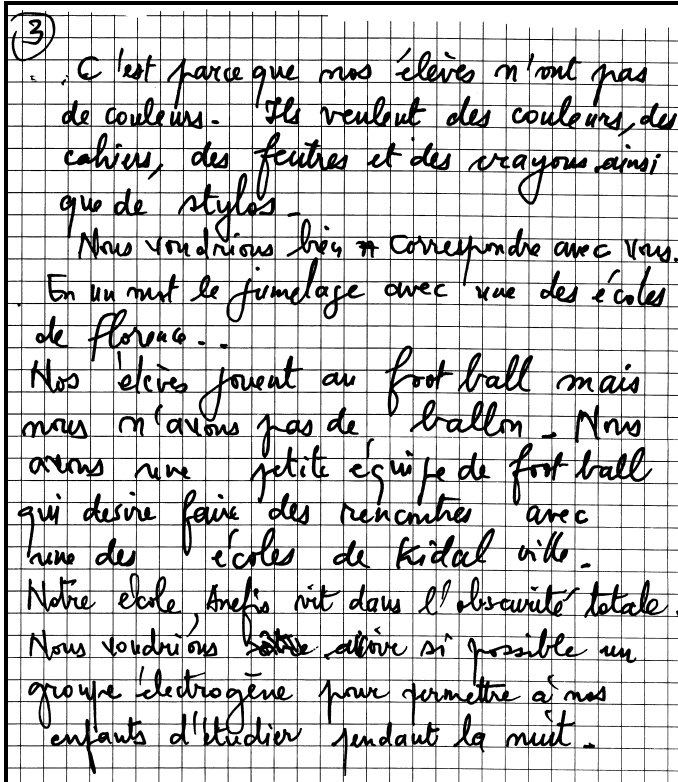 3
C'est parce que nos élèves n'ont pas
de couleurs. Ils veulent des couleurs, des
cahiers, des feutres et des crayons ainsi
que de stylos.
Nous voudrions bien correspondre avec vous.
En un mot le jumelage avec une des écoles
de florence...
Nos élèves jouent au foot ball mais
nous n'avons pas de ballon. Nous
avons une petite équipe de foot ball
qui desire faire des rencontres avec
une des écoles de Kidal ville.
Notre école Anefis vit dans l'obscurité totale.
Nous voudrions si possible un
groupe électrogène pour permettre à nos
enfants d'étudier pendant la nuit.